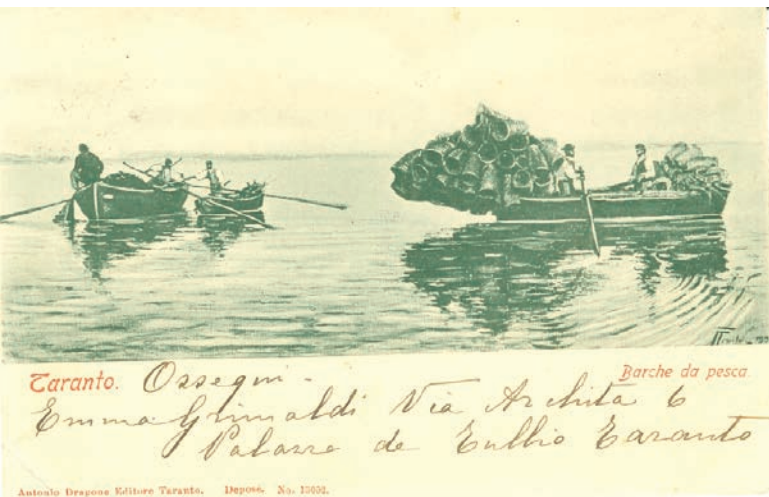 Taranto.
Ossequi -
Barche da pesca
Emma Grimaldi Via Archita 6
Palazzo de Tullio Taranto
Antonio Dragone Editore Taranto. Deposé. No.